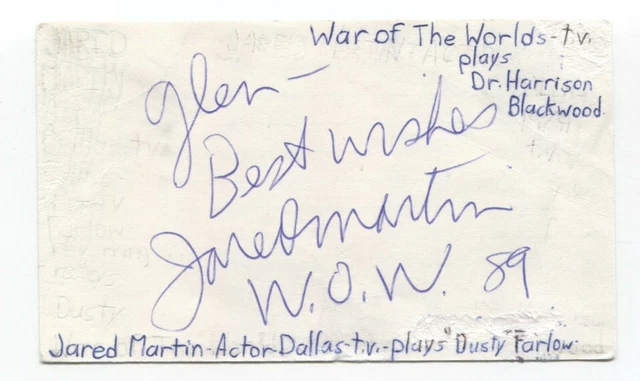 War of The Worlds-t.v.
plays
Dr. Harrison
Blackwood.
Glen-
Best wishes
Jared Martin
W.O.W. 89
Jared Martin-Actor-Dallas-t.v.-plays "Dusty" Farlow.